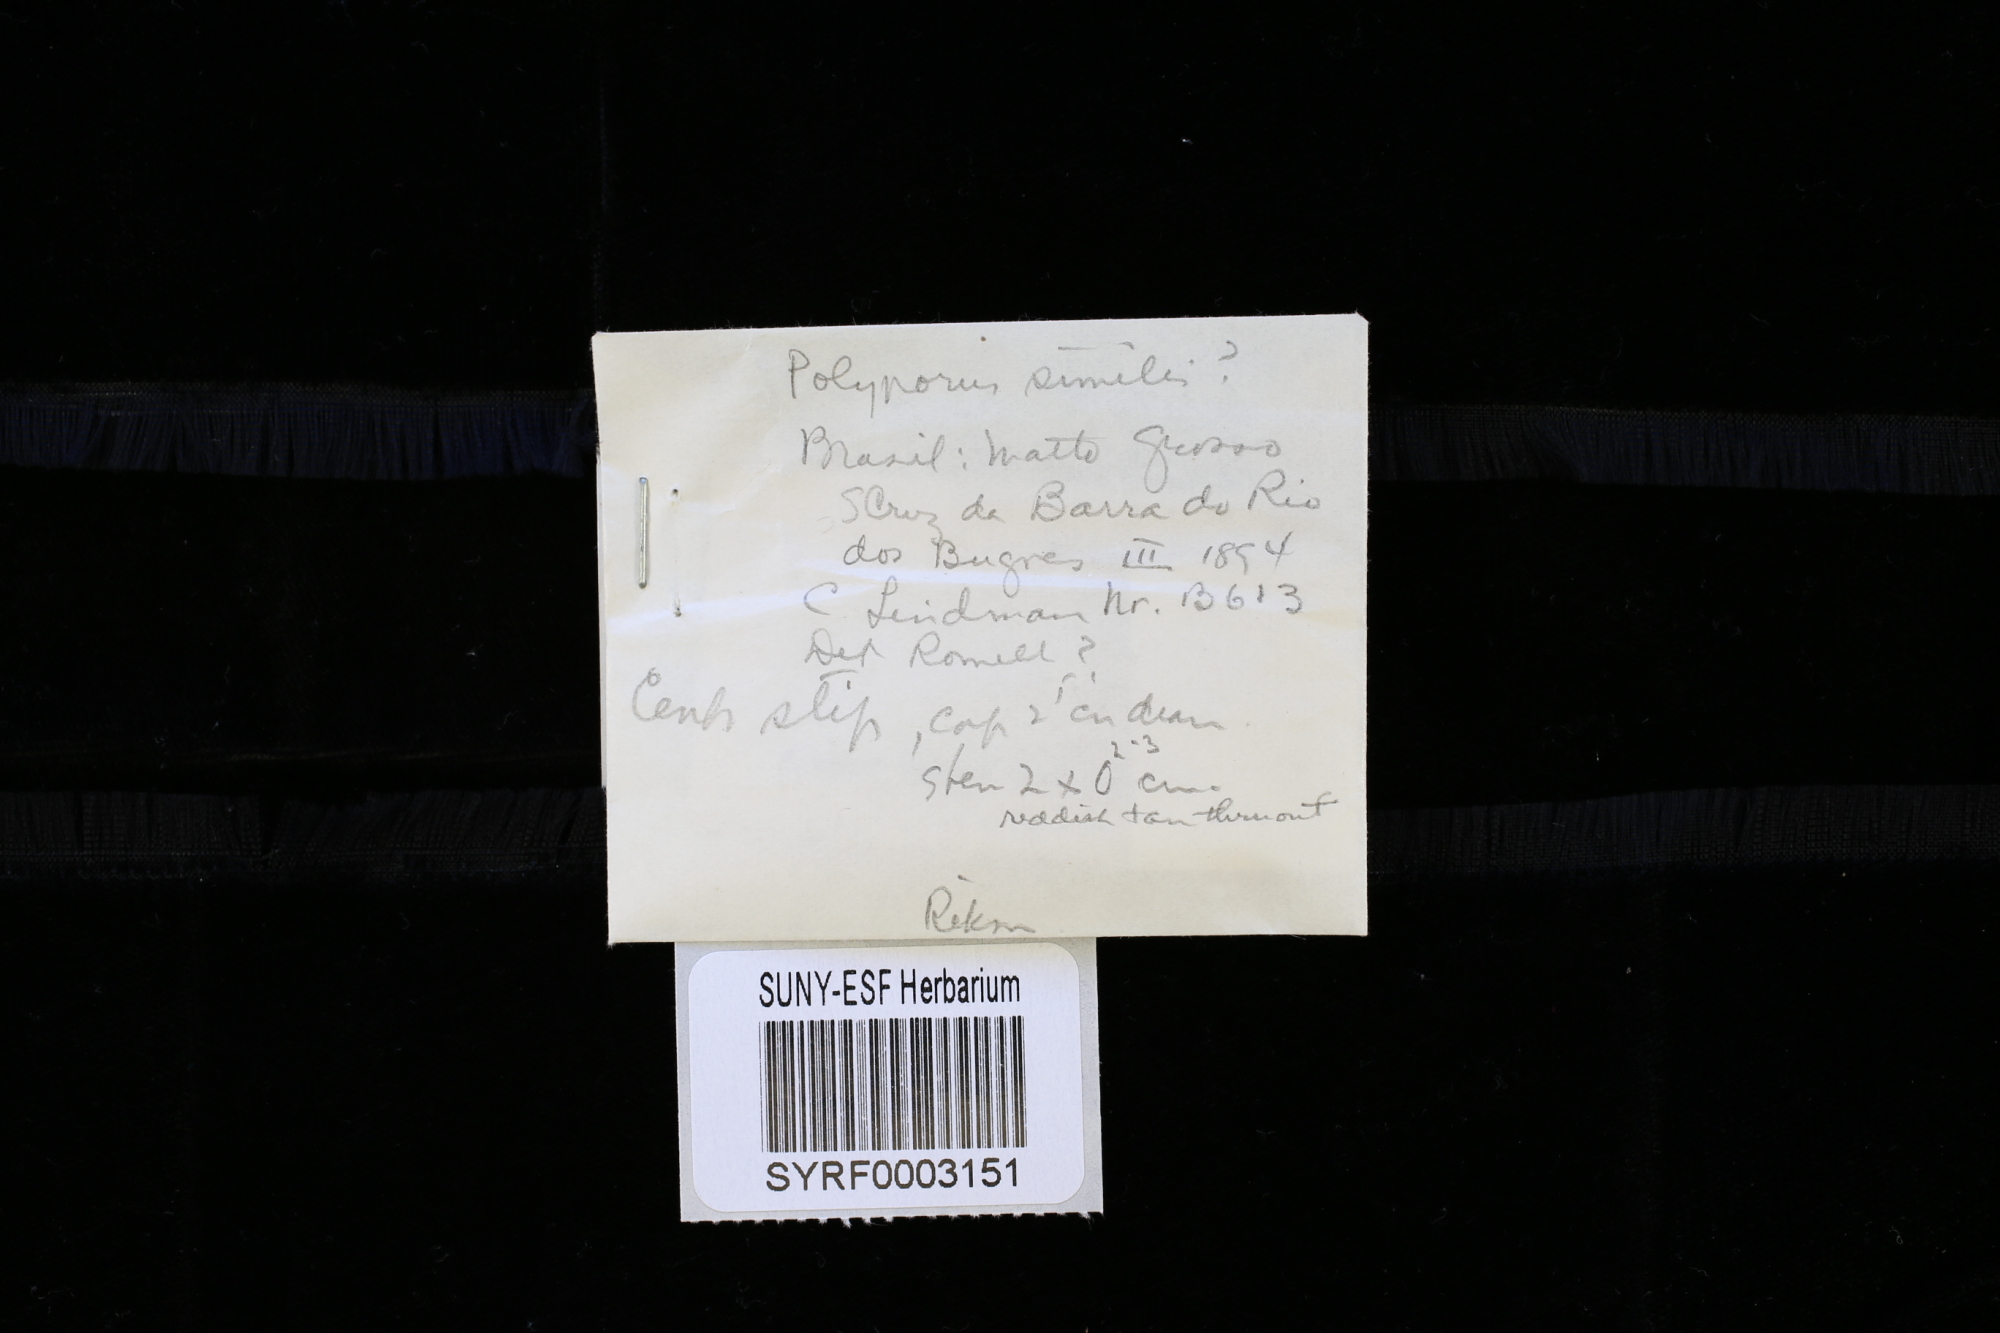 Polyporus similis?
Brasil: Matto Grosso
S Cruz da Barra do Rio
dos Bugres III 1894
C Lindman Nr. B 613
Det Romell?
Centr stip, cap 2 cm diam
Stem 2 x 0 2-3 cm
reddish tan thruout
SUNY-ESF Herbarium
SYRF0003151